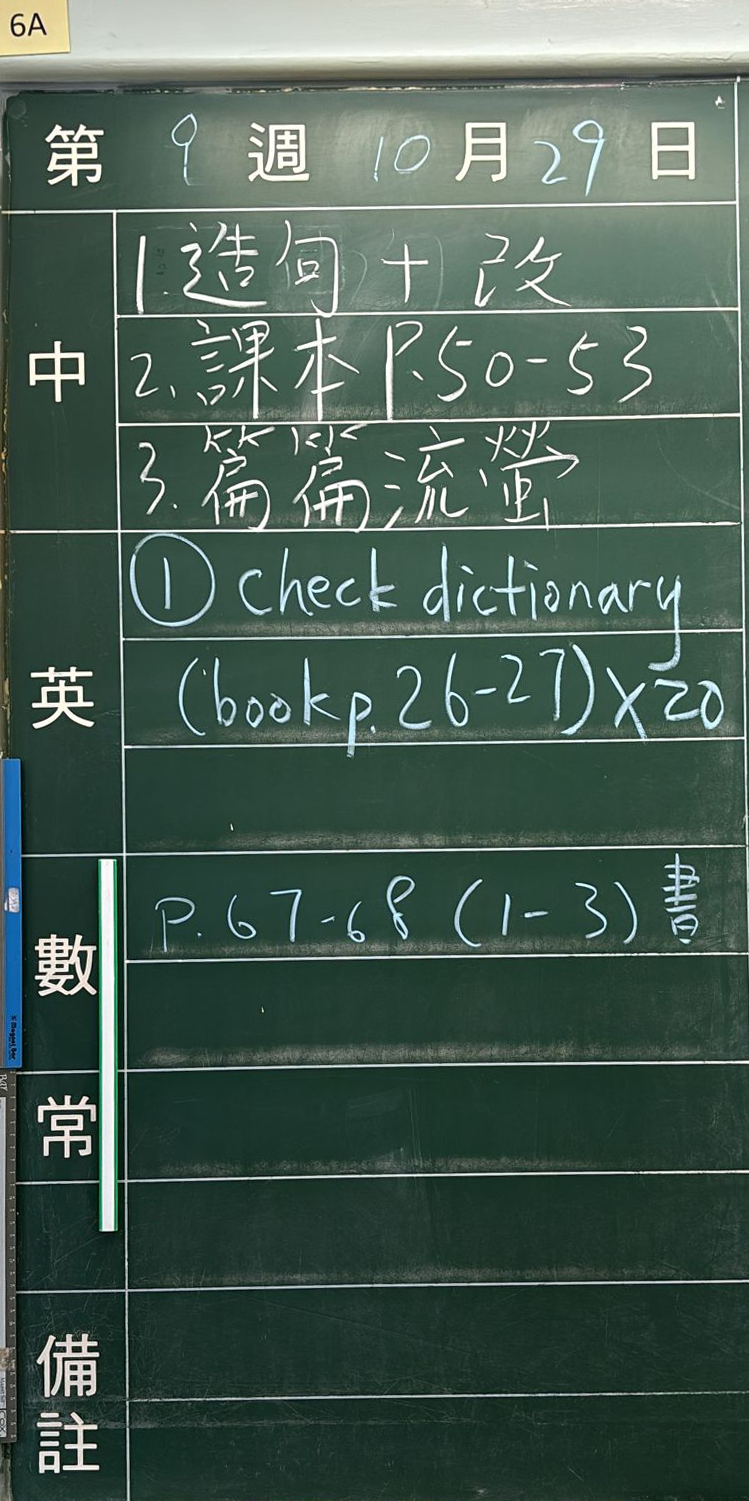 6A
第 9 週 10 月 29 日
中
1.造句+改
2.課本P.50-53
3.篇篇流螢
英
① check dictionary
(book p.26-27)×20
數
P.67-68 (1-3) 書
常
備註